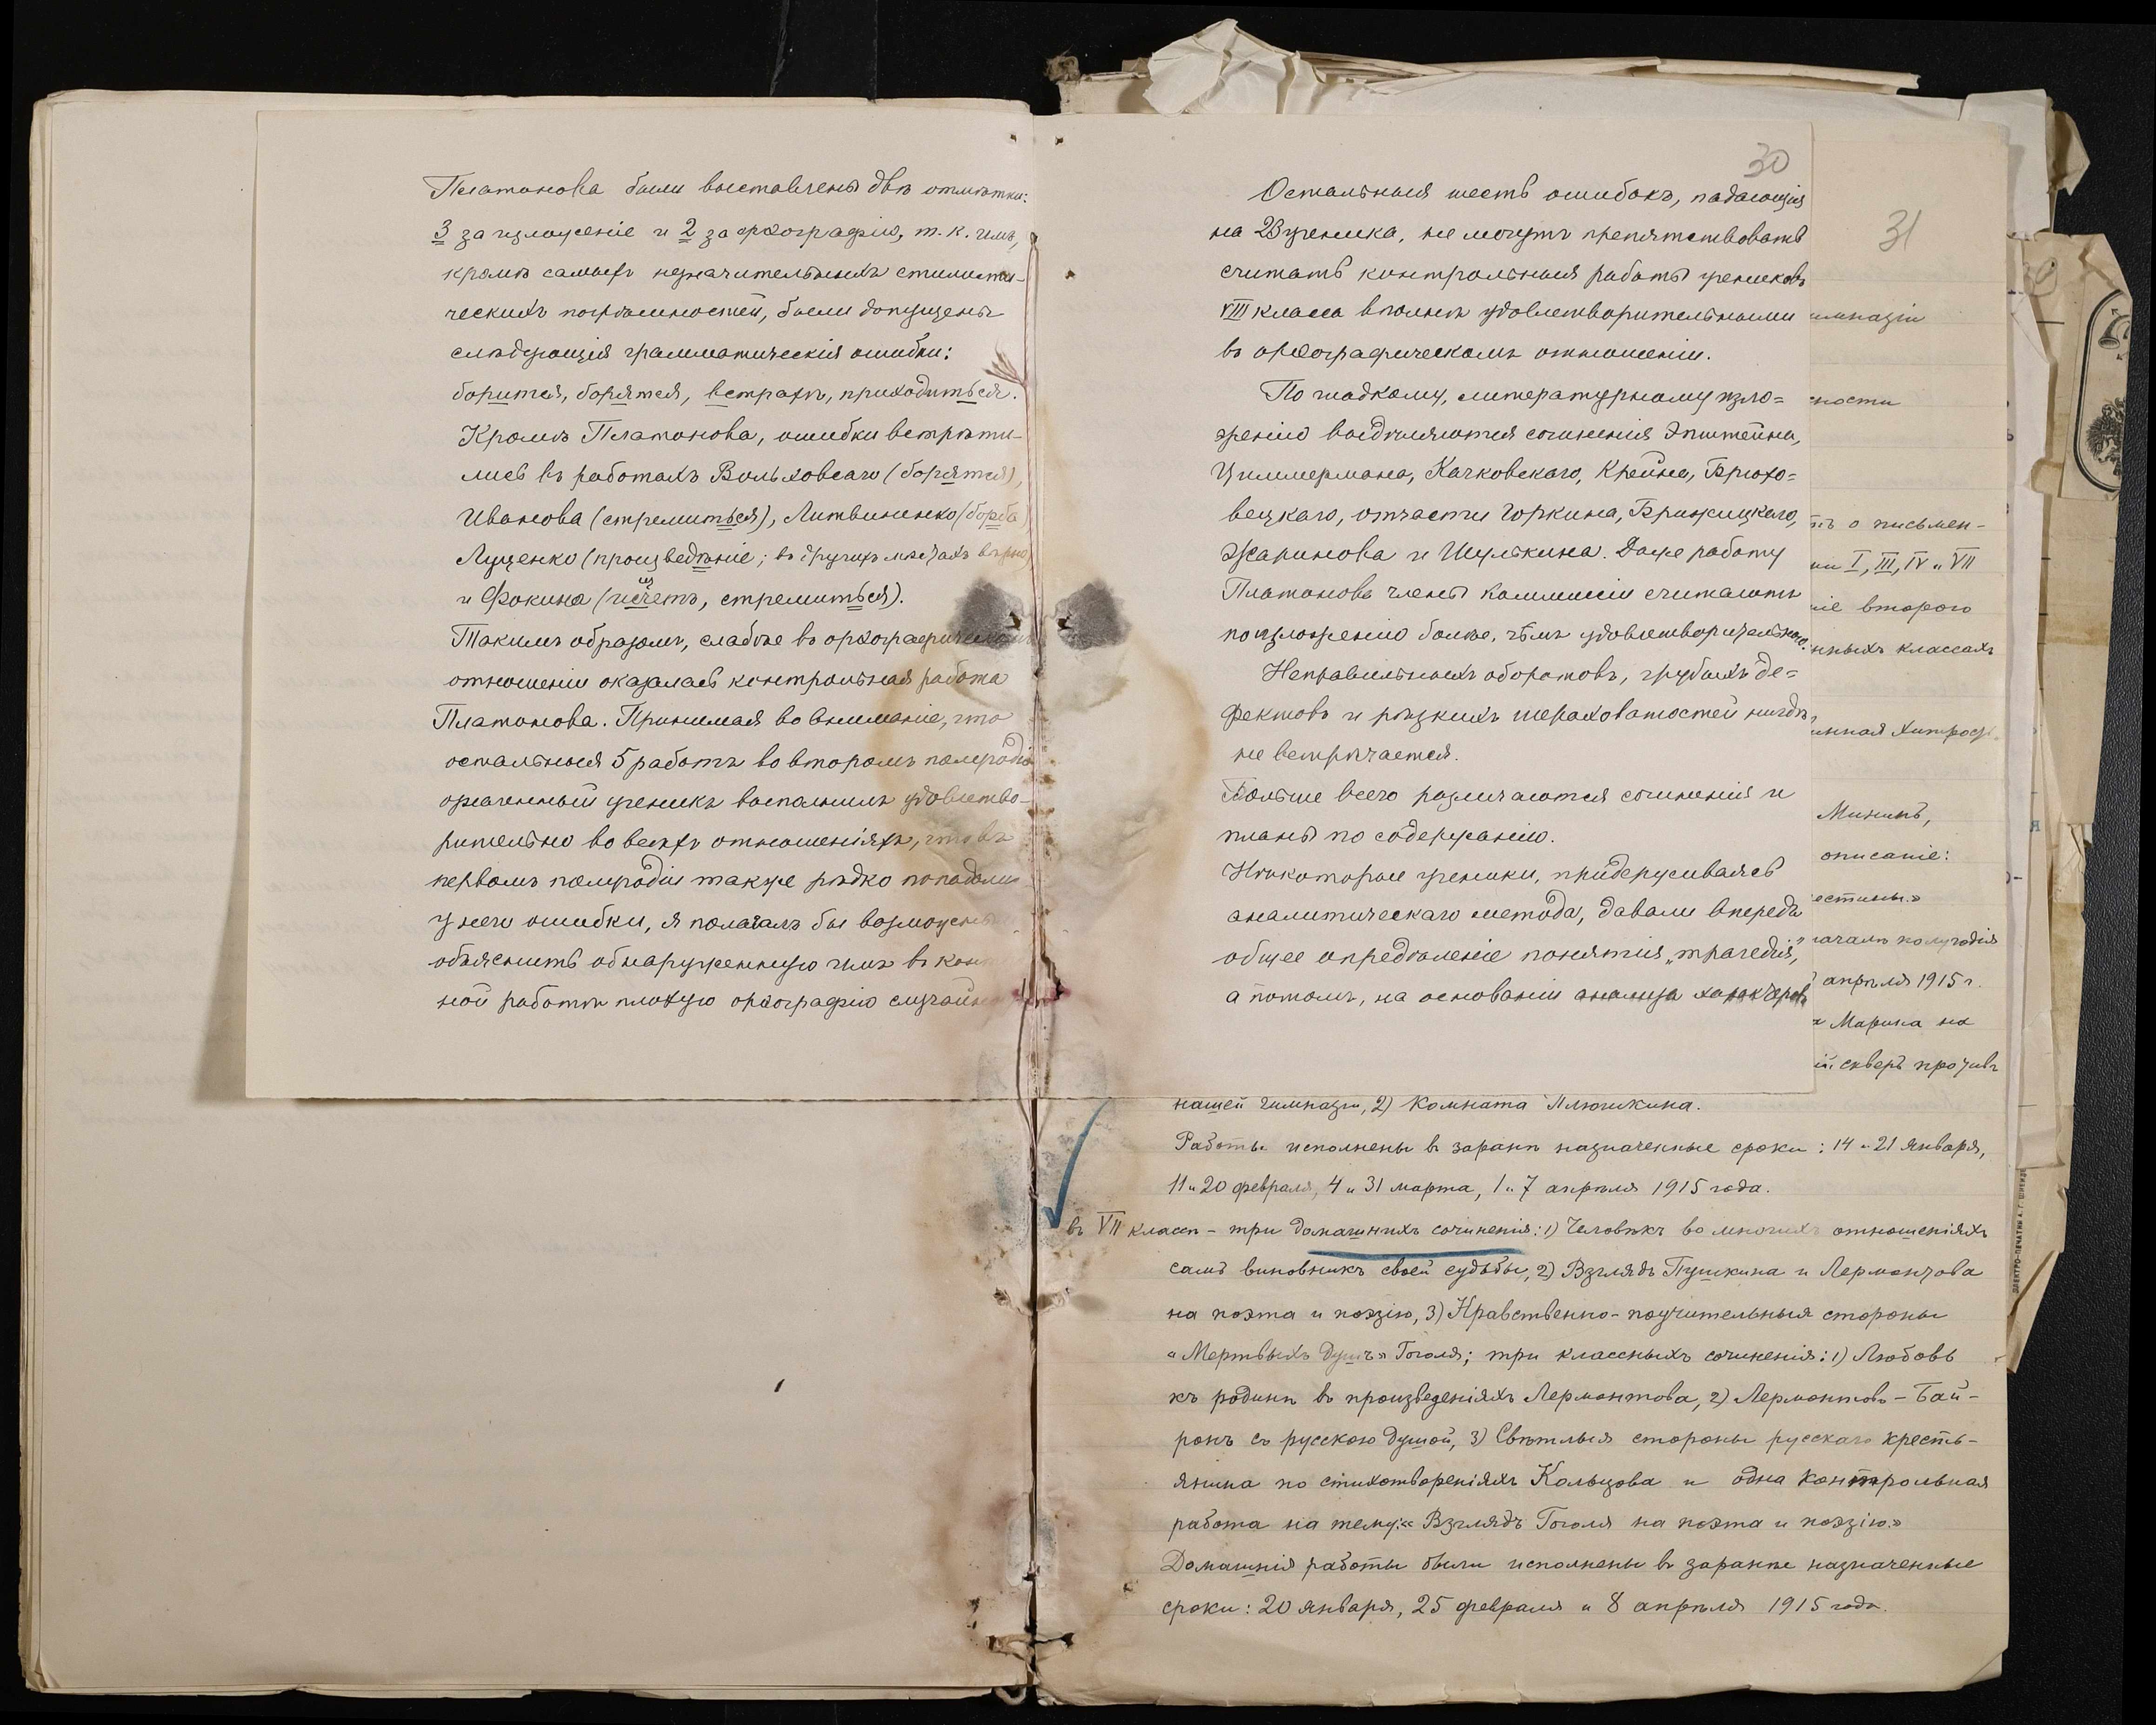 Платонова были выставлены двѣ отмѣтки:
3 за изложеніе и 2 за орѳографію, т. к. имъ,
кромѣ самыхъ незначительныхъ стилисти-
ческихъ погрѣшностей, были допущены
слѣдующія грамматическія ошибки:
борится, борятся, встрахъ, приходиться.
Кромѣ Платонова, ошибки встрѣти-
лись въ работахъ Вольховскаго (борятся),
Иванова (стремиться), Литвиненко (борба)
Луценко (произведѣніе; въ другихъ мѣстахъ вѣрно)
и Фокина (исчетъ, стремиться).
Такимъ образомъ, слабѣе въ орѳографическомъ
отношеніи оказалась контрольная работа
Платонова. Принимая во вниманіе, что
остальныя 5 работъ во второмъ полугодіи
означенный ученикъ выполнилъ удовлетво-
рительно во всѣхъ отношеніяхъ, что въ
первомъ полугодіи также рѣдко попадались
у него ошибки, я полагалъ бы возможнымъ
объяснить обнаруженную имъ въ конт
ной работѣ плохую орѳографію случайн
30
Остальныя шесть ошибокъ, падающія
на 28 ученика, не могутъ препятствовать
считать контрольныя работы учениковъ
VIII класса вполнѣ удовлетворительными
въ орѳографическомъ отношеніи.
По гладкому, литературному изло=
женію выдѣляются сочиненія Эпштейна,
Циммермана, Качковскаго, Крейна, Брюхо=
вецкаго, отчасти Горкина, Брижицкаго,
Жаринова и Шулькина. Даже работу
Платонова члены коммиссіи считаютъ
по изложенію болѣе, чѣмъ удовлетворительною.
Неправильныхъ оборотовъ, грубыхъ де=
фектовъ и рѣзкихъ шероховатостей нигдѣ
не встрѣчается.
Больше всего различаются сочиненія и
планы по содержанію.
Нѣкоторые ученики, придерживаясь
аналитическаго метода, давали впередъ
общее опредѣленіе понятія „трагедія",
а потомъ, на основаніи анализа характеровъ
31
имназіи
ности
тъ о письмен-
ии I, III, IV и VII
ніе второго
нныхъ классахъ
Мининъ,
описаніе:
естины."
началѣ полугодія
апрѣля 1915 г.
Марина на
ій скверъ противъ
нашей гимназіи, 2) Комната Плюшкина.
Работы исполнены въ заранѣ назначенные сроки: 14 и 21 января,
11 и 20 февраля, 4 и 31 марта, 1 и 7 апрѣля 1915 года.
въ VII классѣ - три домашнихъ сочиненія: 1) Человѣкъ во многихъ отношеніяхъ
самъ виновникъ своей судьбы, 2) Взглядъ Пушкина и Лермонтова
на поэта и поэзію, 3) Нравственно-поучительныя стороны
«Мертвыхъ душъ» Гоголя; три классныхъ сочиненія: 1) Любовь
къ родинѣ въ произведеніяхъ Лермонтова, 2) Лермонтовъ - Бай-
ронъ съ русскою душой, 3) Свѣтлыя стороны русскаго кресть-
янина по стихотвореніямъ Кольцова и одна контрольная
работа на тему: «Взглядъ Гоголя на поэта и поэзію.»
Домашнія работы были исполнены въ заранѣе назначенные
сроки: 20 января, 25 февраля и 8 апрѣля 1915 года.